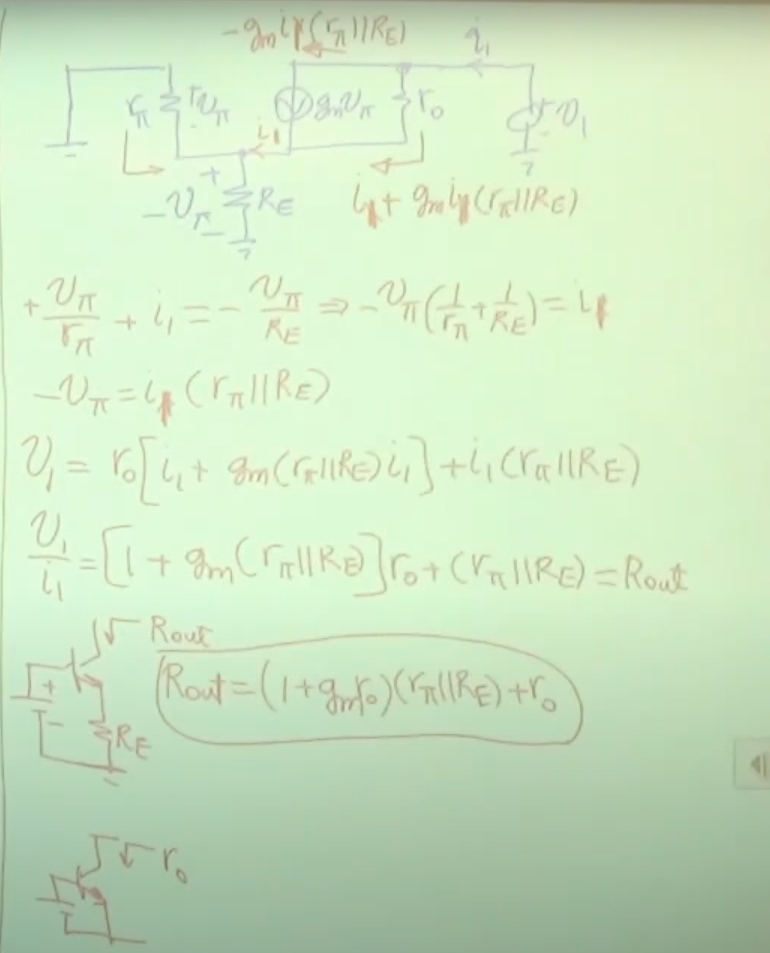 -gₘi₁(r_π||R_E)
i₁
r_π + v_π - gₘv_π r_o + v₁ -
i₁
+
-v_π R_E i₁ + gₘi₁(r_π||R_E)
-
+ v_π/r_π + i₁ = - v_π/R_E ⇒ -v_π(1/r_π + 1/R_E) = i₁
-v_π = i₁(r_π||R_E)
v₁ = r_o[i₁ + gₘ(r_π||R_E)i₁] + i₁(r_π||R_E)
v₁/i₁ = [1 + gₘ(r_π||R_E)]r_o + (r_π||R_E) = Rout
Rout
Rout = (1 + gₘr_o)(r_π||R_E) + r_o
+
-
R_E
r_o